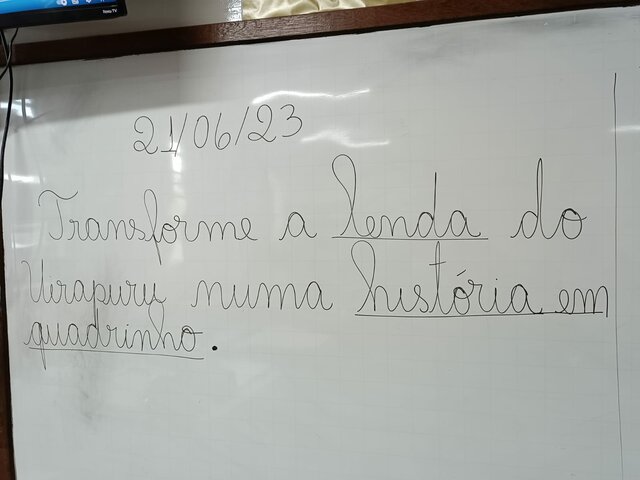 Roku TV
21/06/23
Transforme a lenda do
Uirapuru numa história em
quadrinho.